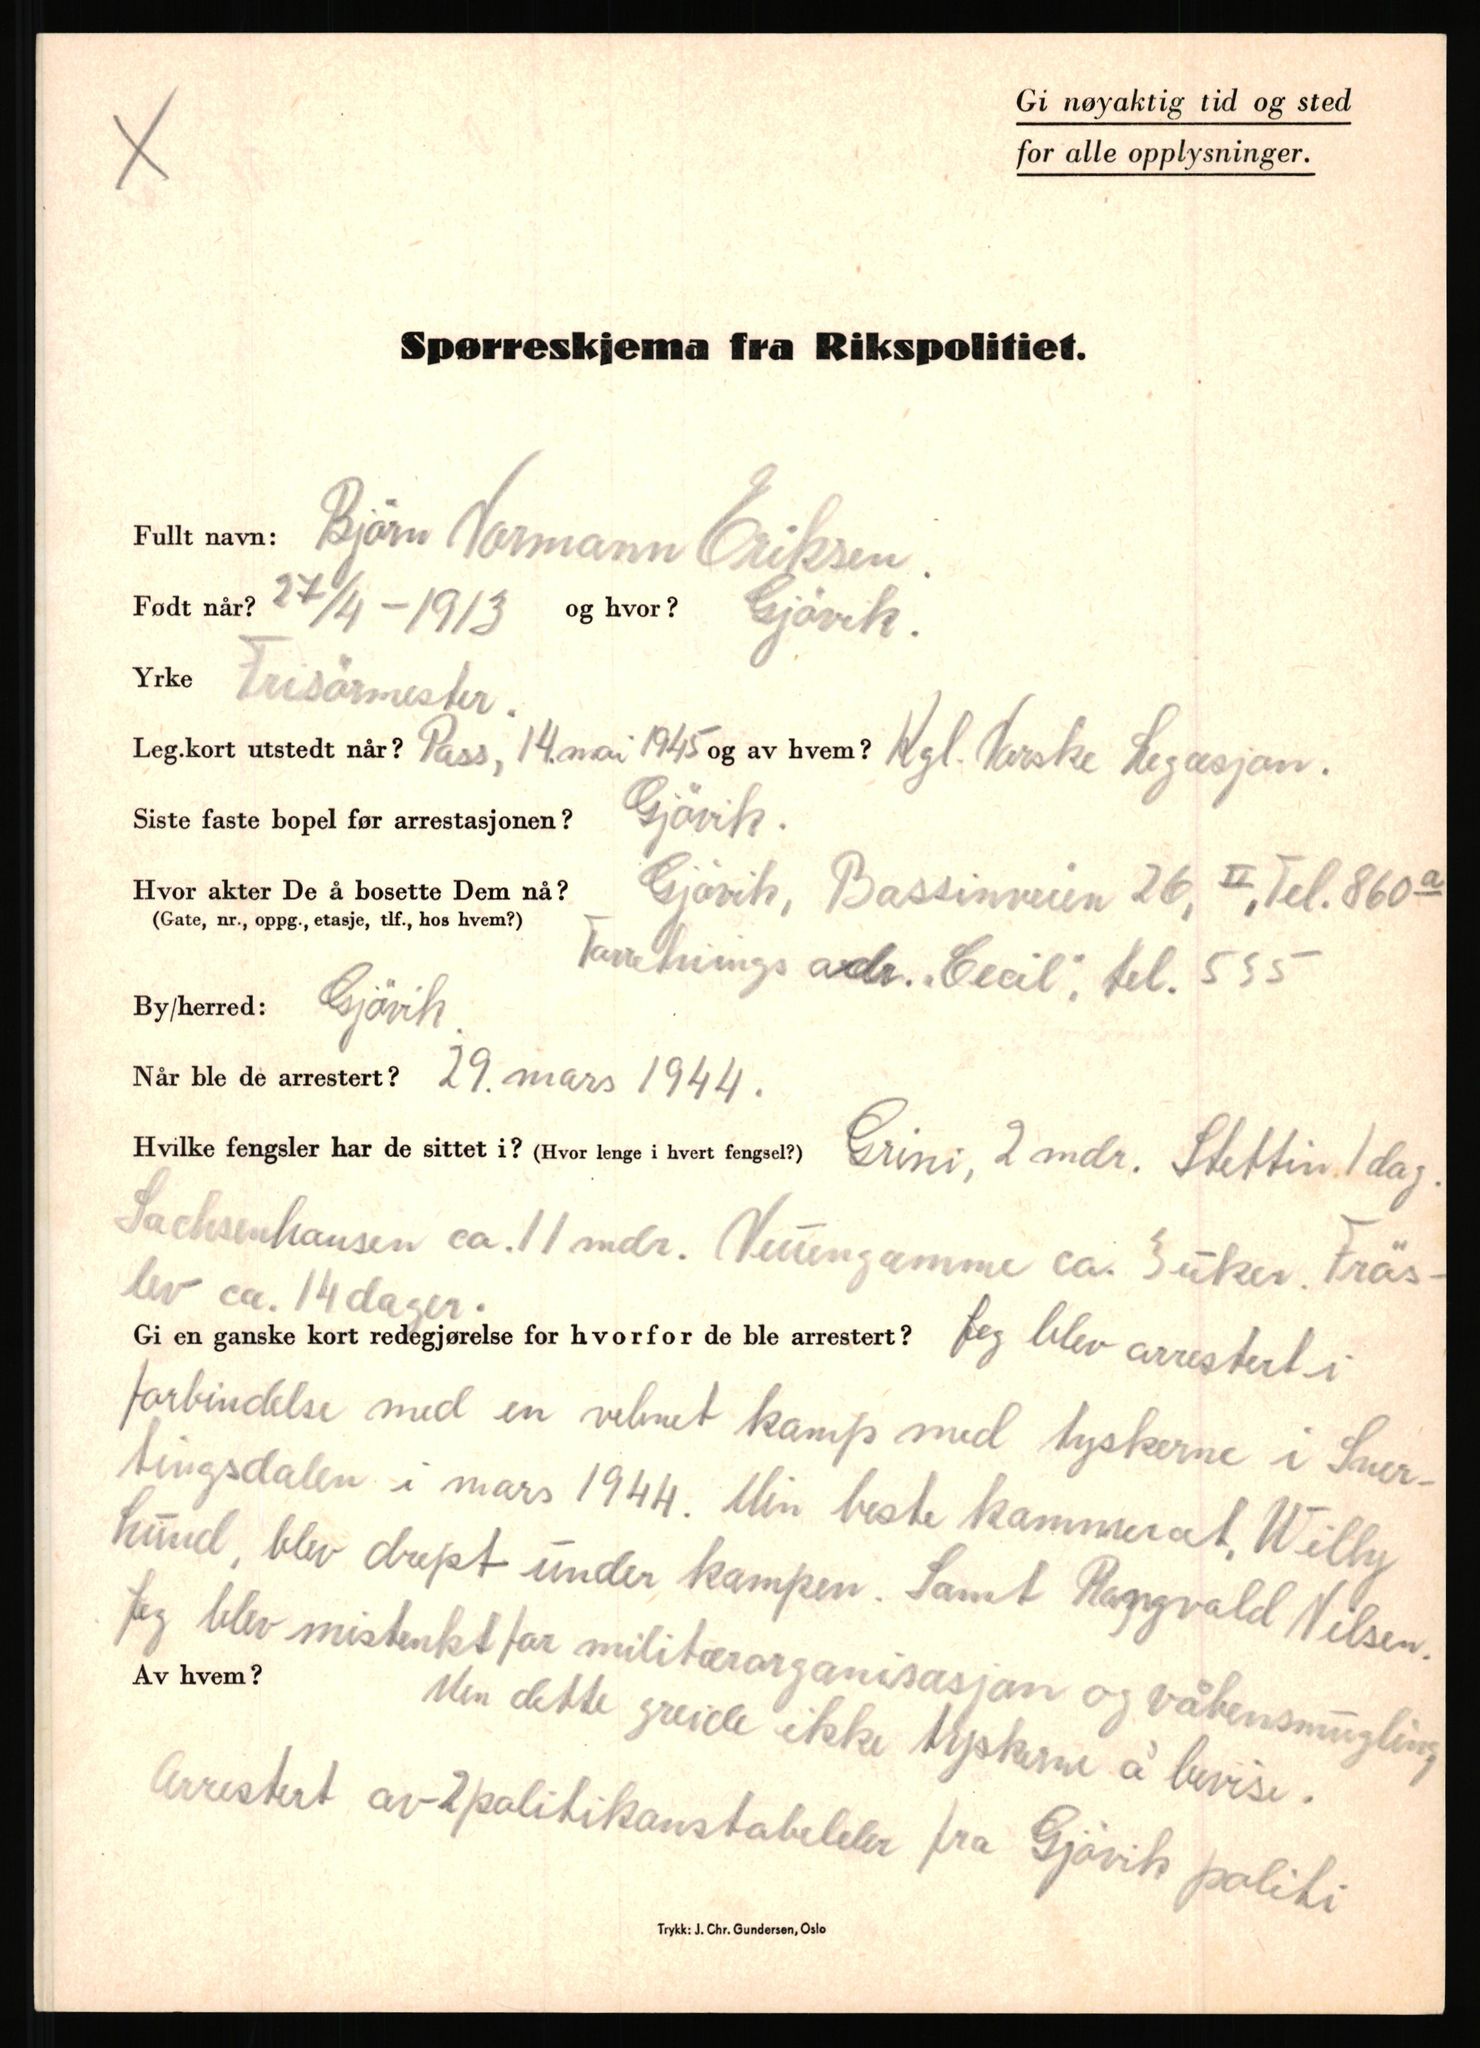 X
Gi nøyaktig tid og sted
for alle opplysninger.
Spørreskjema fra Rikspolitiet.
Fullt navn: Björn Normann Eriksen.
Født når? 27/4 – 1913 og hvor? Gjövik.
Yrke Frisörmester.
Leg.kort utstedt når? Pass, 14. mai 1945 og av hvem? Kgl. Norske Legasjon.
Siste faste bopel før arrestasjonen? Gjövik.
Hvor akter De å bosette Dem nå? Gjövik, Bassinveien 26, II, Tel. 860a
(Gate, nr., oppg., etasje, tlf., hos hvem?)
Forretnings adr. „Cecil", tel. 535
By/herred: Gjövik.
Når ble de arrestert? 29. mars 1944.
Hvilke fengsler har de sittet i? (Hvor lenge i hvert fengsel?) Grini, 2 mdr. Stettin 1 dag.
Sachsenhausen ca. 11 mdr. Neuengamme ca. 3 uker. Frös-
lev ca. 14 dager.
Gi en ganske kort redegjørelse for hvorfor de ble arrestert? Jeg blev arrestert i
forbindelse med en vebnet kamp med tyskerne i Sner-
tingsdalen i mars 1944. Min beste kammerat, Willy
Lund, blev drept under kampen. Samt Ragnvald Nilsen.
Jeg blev mistenkt for militærorganisasjon og våbensmugling,
Av hvem? Men dette greide ikke tyskerne å bevise.
Arrestert av 2 politikonstabeler fra Gjövik politi
Trykk: J. Chr. Gundersen, Oslo